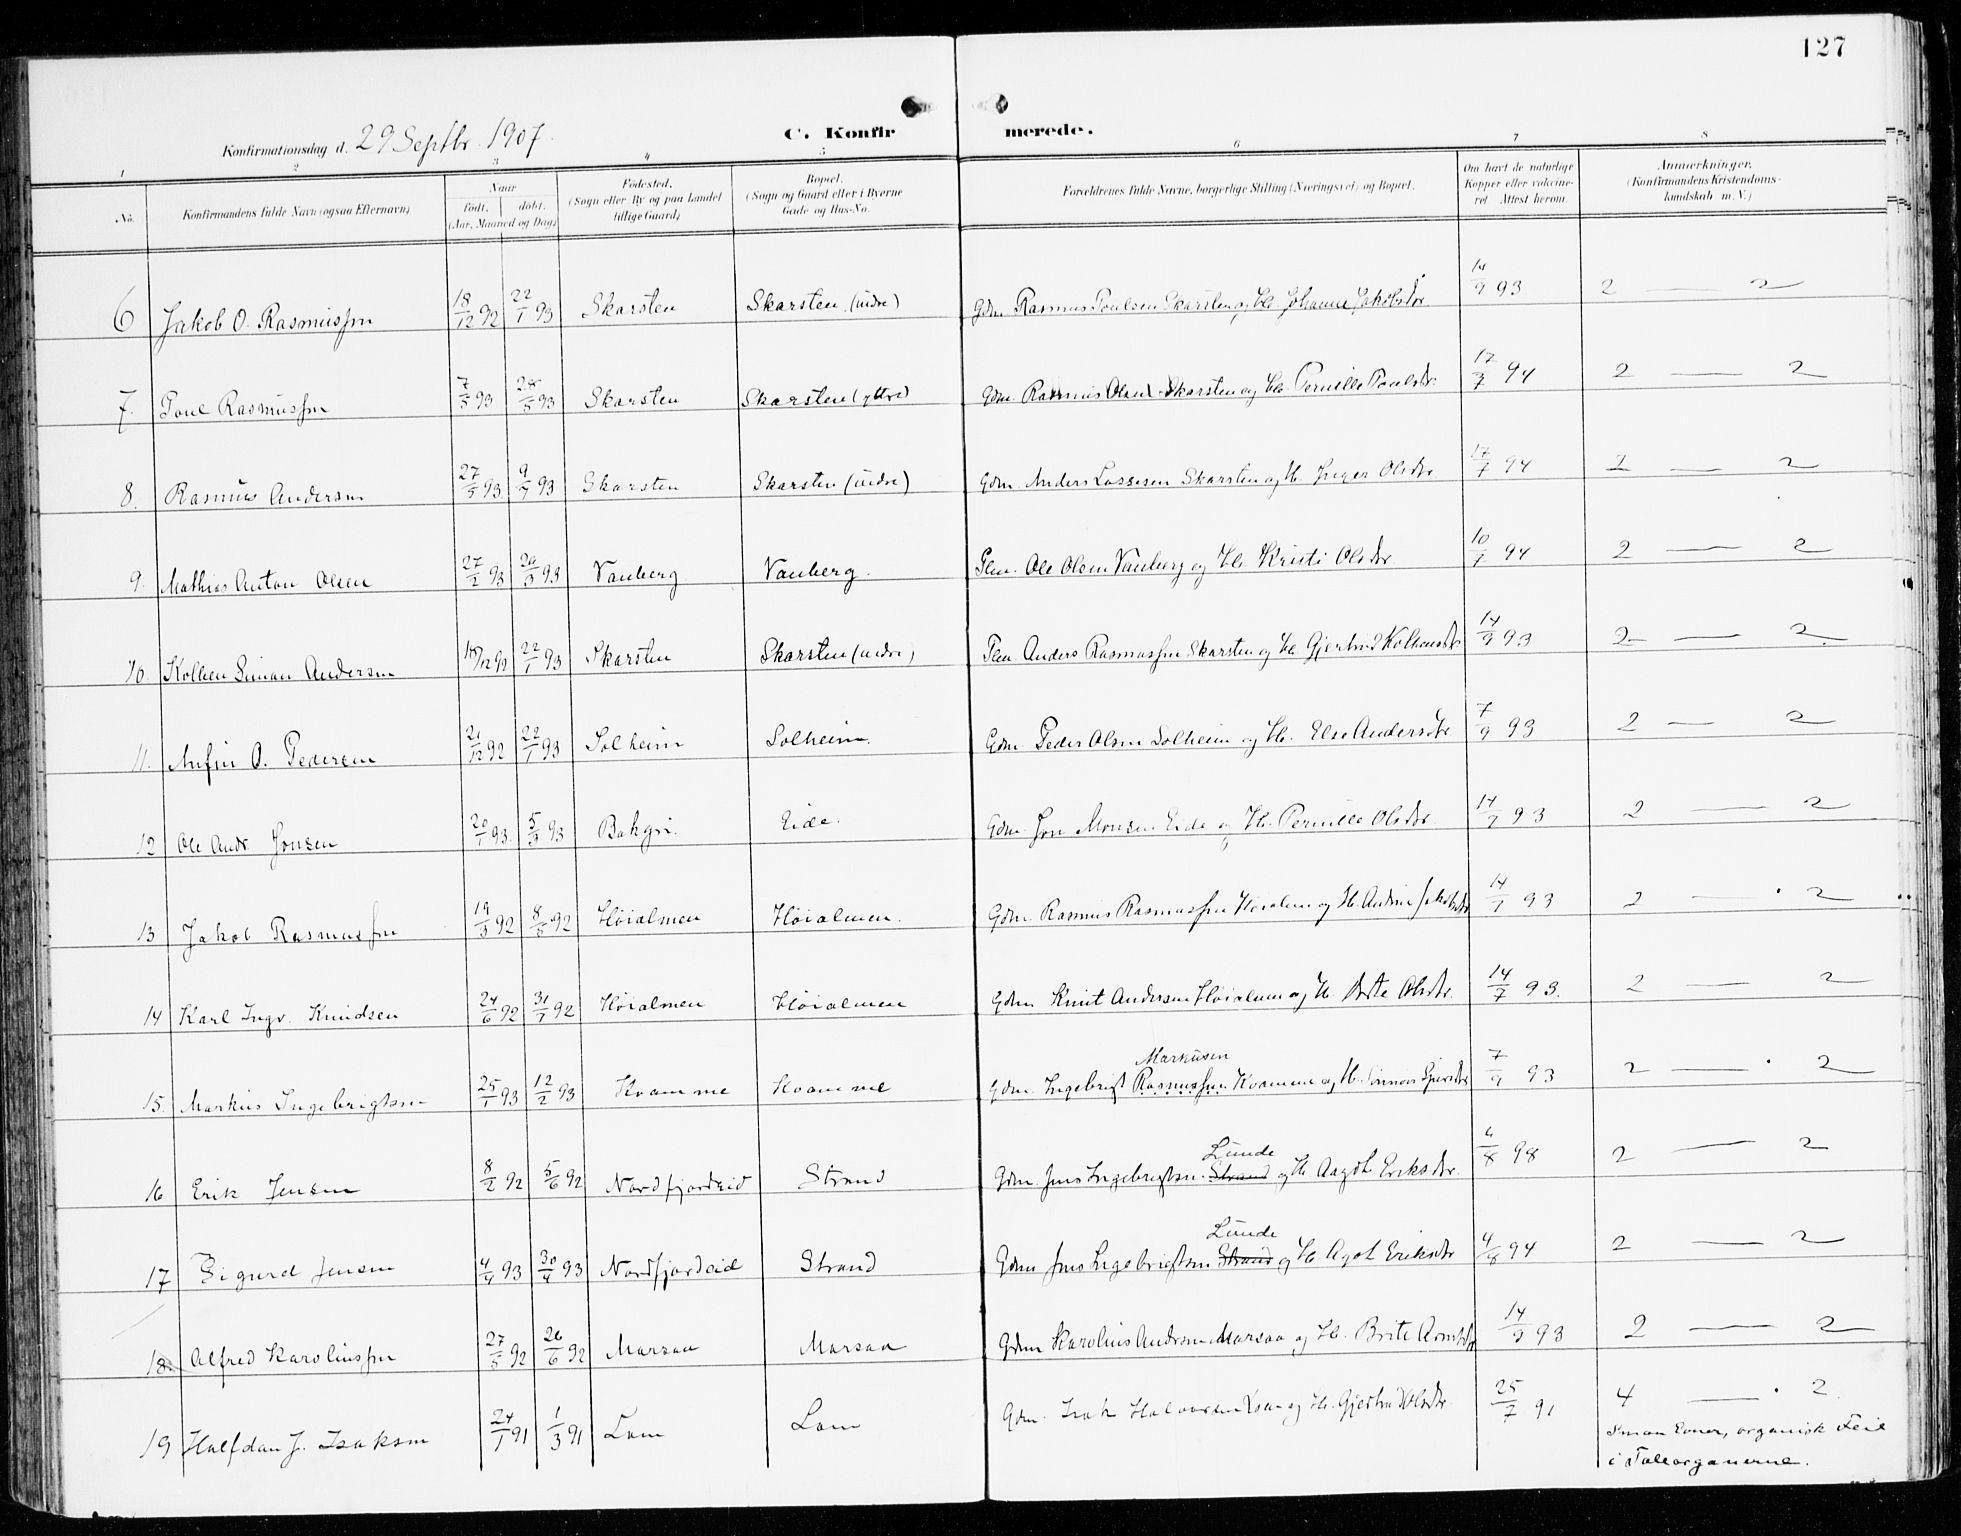 127
Konfirmationsdag d. 29 Septbr. 1907.
C. Konfirmerede.
1 2 3 4 5 6 7 8
No. Konfirmandens fulde Navn (ogsaa Efternavn) Naar født. døbt. (Aar, Maaned og Dag) Fødested. (Sogn eller By og paa Landet tillige Gaard) Bopæl. (Sogn og Gaard eller i Byerne Gade og Hus-No. Forældrenes fulde Navne, borgerlige Stilling (Næringsvei) og Bopæl. Om havt de naturlige Kopper eller vaccineret Attest herom. Anmærkninger. (Konfirmandens Kristendomskundskab m. V.)
6 Jakob O. Rasmussen 18/12 92 22/1 93 Skarsten Skarsten (indre) Gdm. Rasmus Poulsen Skarsten og H. Johanne Jakobsdr. 14/9 93 2 — 2
7. Poul Rasmussen 7/5 93 28/5 93 Skarsten Skarsten (yttre) Gdm. Rasmus Olsen Skarsten og H. Pernille Poulsdr. 17/7 94 2 — 2
8. Rasmus Andersen 27/5 93 9/7 93 Skarsten Skarsten (indre) Gdm. Anders Lassesen Skarsten og H. Inger Olsdr 17/7 94 2 — 2
9. Mathias Anton Olsen 27/2 93 20/3 93 Vanberg Vanberg. Ole Olsen Vanberg og H. Kristi Olsdr 10/7 94 2 — 2
10. Kolben Simon Andersen 22/1 93 Skarsten Skarsten (indre) Anders Rasmussen Skarsten og H. Gjertrud Kolbensdr. 14/9 93 2 — 2
11. Anfin O. Pedersen 21/12 92 22/1 93 Solheim Solheim. Gdm. Peder Olsen Solheim og H. Else Andersdr 7/9 93 2 — 2
12 Ole Andr. Jonsen 20/1 93. 5/3 93 Eide. Gdm. Jon Monsen Eide og H. Pernille Olsdr 14/7 93 2 — 2
13 Jakob Rasmussen 19/3 92 8/5 92 Høialmen Høialmen. Gdm. Rasmus Rasmussen Høialmen og H. Jakobsdr 14/7 93 2 — 2
14 Karl Ingv. Knudsen 24/6 92 31/7 92 Høialmen Høialmen Gdm Knut Andersen Høialmen og H. Brite Olsdr. 14/7 93. 2 — 2
Markusen
15. Markus Ingebrigtsen 25/1 93 12/2 93 Kvamme Kvamme Gdm. Ingebrigt Rasmussen Kvamme og H. 7/9 93 2 — 2
Lunde
16 Erik Jensen 8/2 92 5/6 92 Nordfjordeid Strand Gdm. Jens Ingebrigtsn. Strand og H. Aagot Eriksdr. 4/8 98 2 — 2
Lunde
17 Sigurd Jensen 4/4 93 30/4 93 Nordfjordeid Strand Gdm Jens Ingebrigtsen Strand og H. Agot Eriksdr 4/8 94 2 — 2
18. Alfred Karolinssen 27/5 92 26/6 92 Marsaa Marsaa Gdm Karolius Andersen Marsaa og H. Brite 14/9 93 2 — 2
19 Halfdan J. Isaksen 24/1 91 1/3 91 Lom Lom Gdm. Isak Halvorsen Lom og H. Gjertrud Olsdr. 25/7 91 4 — 2.
Smaa Evner, organisk Feil
i Taleorganerne.